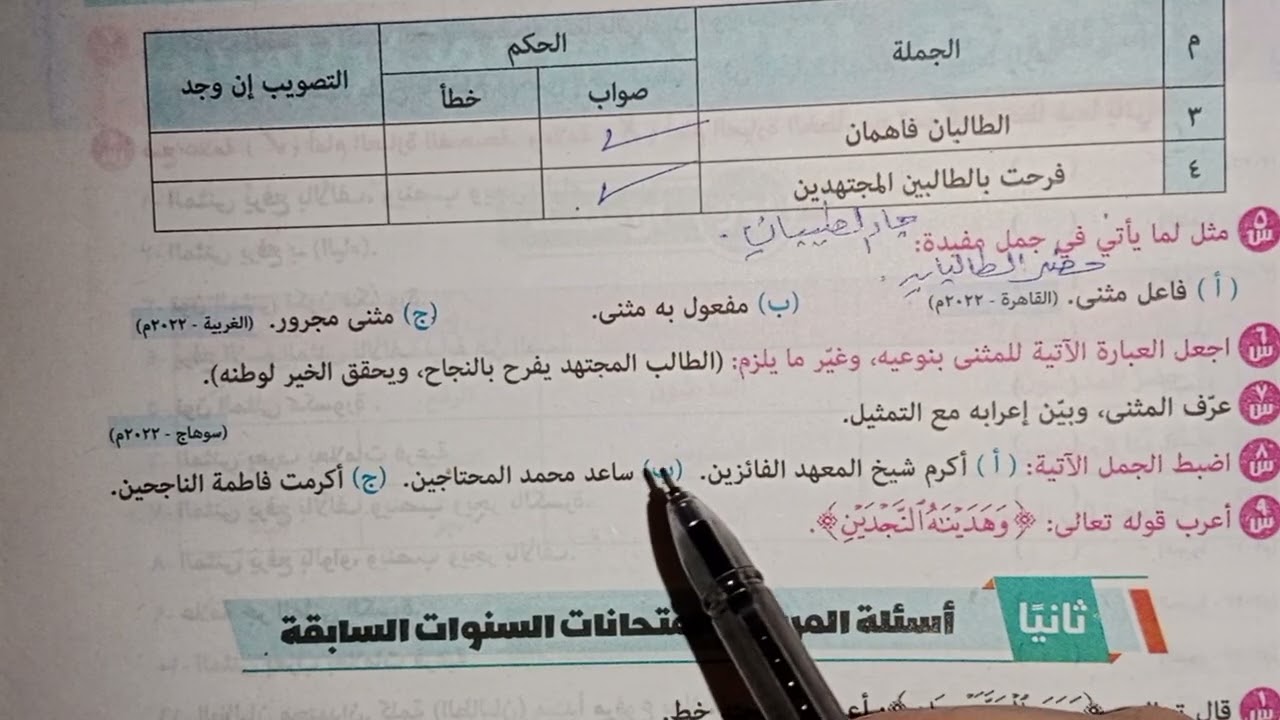 م الجملة الحكم التصويب إن وجد
صواب خطأ
٣ الطالبان فاهمان
٤ فرحت بالطالبين المجتهدين
س٥ مثل لما يأتي في جمل مفيدة:
حضر الطالبان
(أ) فاعل مثنى. (القاهرة - ٢٠٢٢م) (ب) مفعول به مثنى. (ج) مثنى مجرور. (الغربية - ٢٠٢٢م)
س٦ اجعل العبارة الآتية للمثنى بنوعيه، وغيّر ما يلزم: (الطالب المجتهد يفرح بالنجاح، ويحقق الخير لوطنه).
س٧ عرّف المثنى، وبيّن إعرابه مع التمثيل. (سوهاج - ٢٠٢٢م)
س٨ اضبط الجمل الآتية: (أ) أكرم شيخ المعهد الفائزين. (ب) ساعد محمد المحتاجين. (ج) أكرمت فاطمة الناجحين.
س٩ أعرب قوله تعالى: ﴿وَهَدَيْنَٰهُ ٱلنَّجْدَيْنِ﴾.
ثانيًا أسئلة امتحانات السنوات السابقة
س١ قال خط.